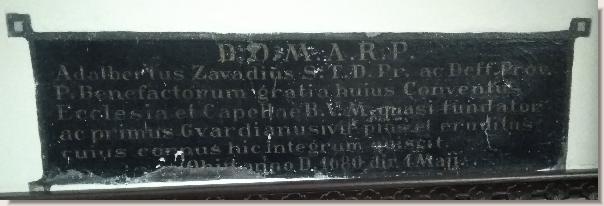 D. O. M. A. R. P.
Adalbertus Zavadius S. T. D. Pr. ac Deff. Prov.
P. Benefactorum gratia huius Conventus
Ecclesia et Capellae B. V. M. quasi fundator
ac primus Gvardianus vir pius et eruditus
cuius corpus hic integrum
Obiit anno D. 1680 die 1 Maij.